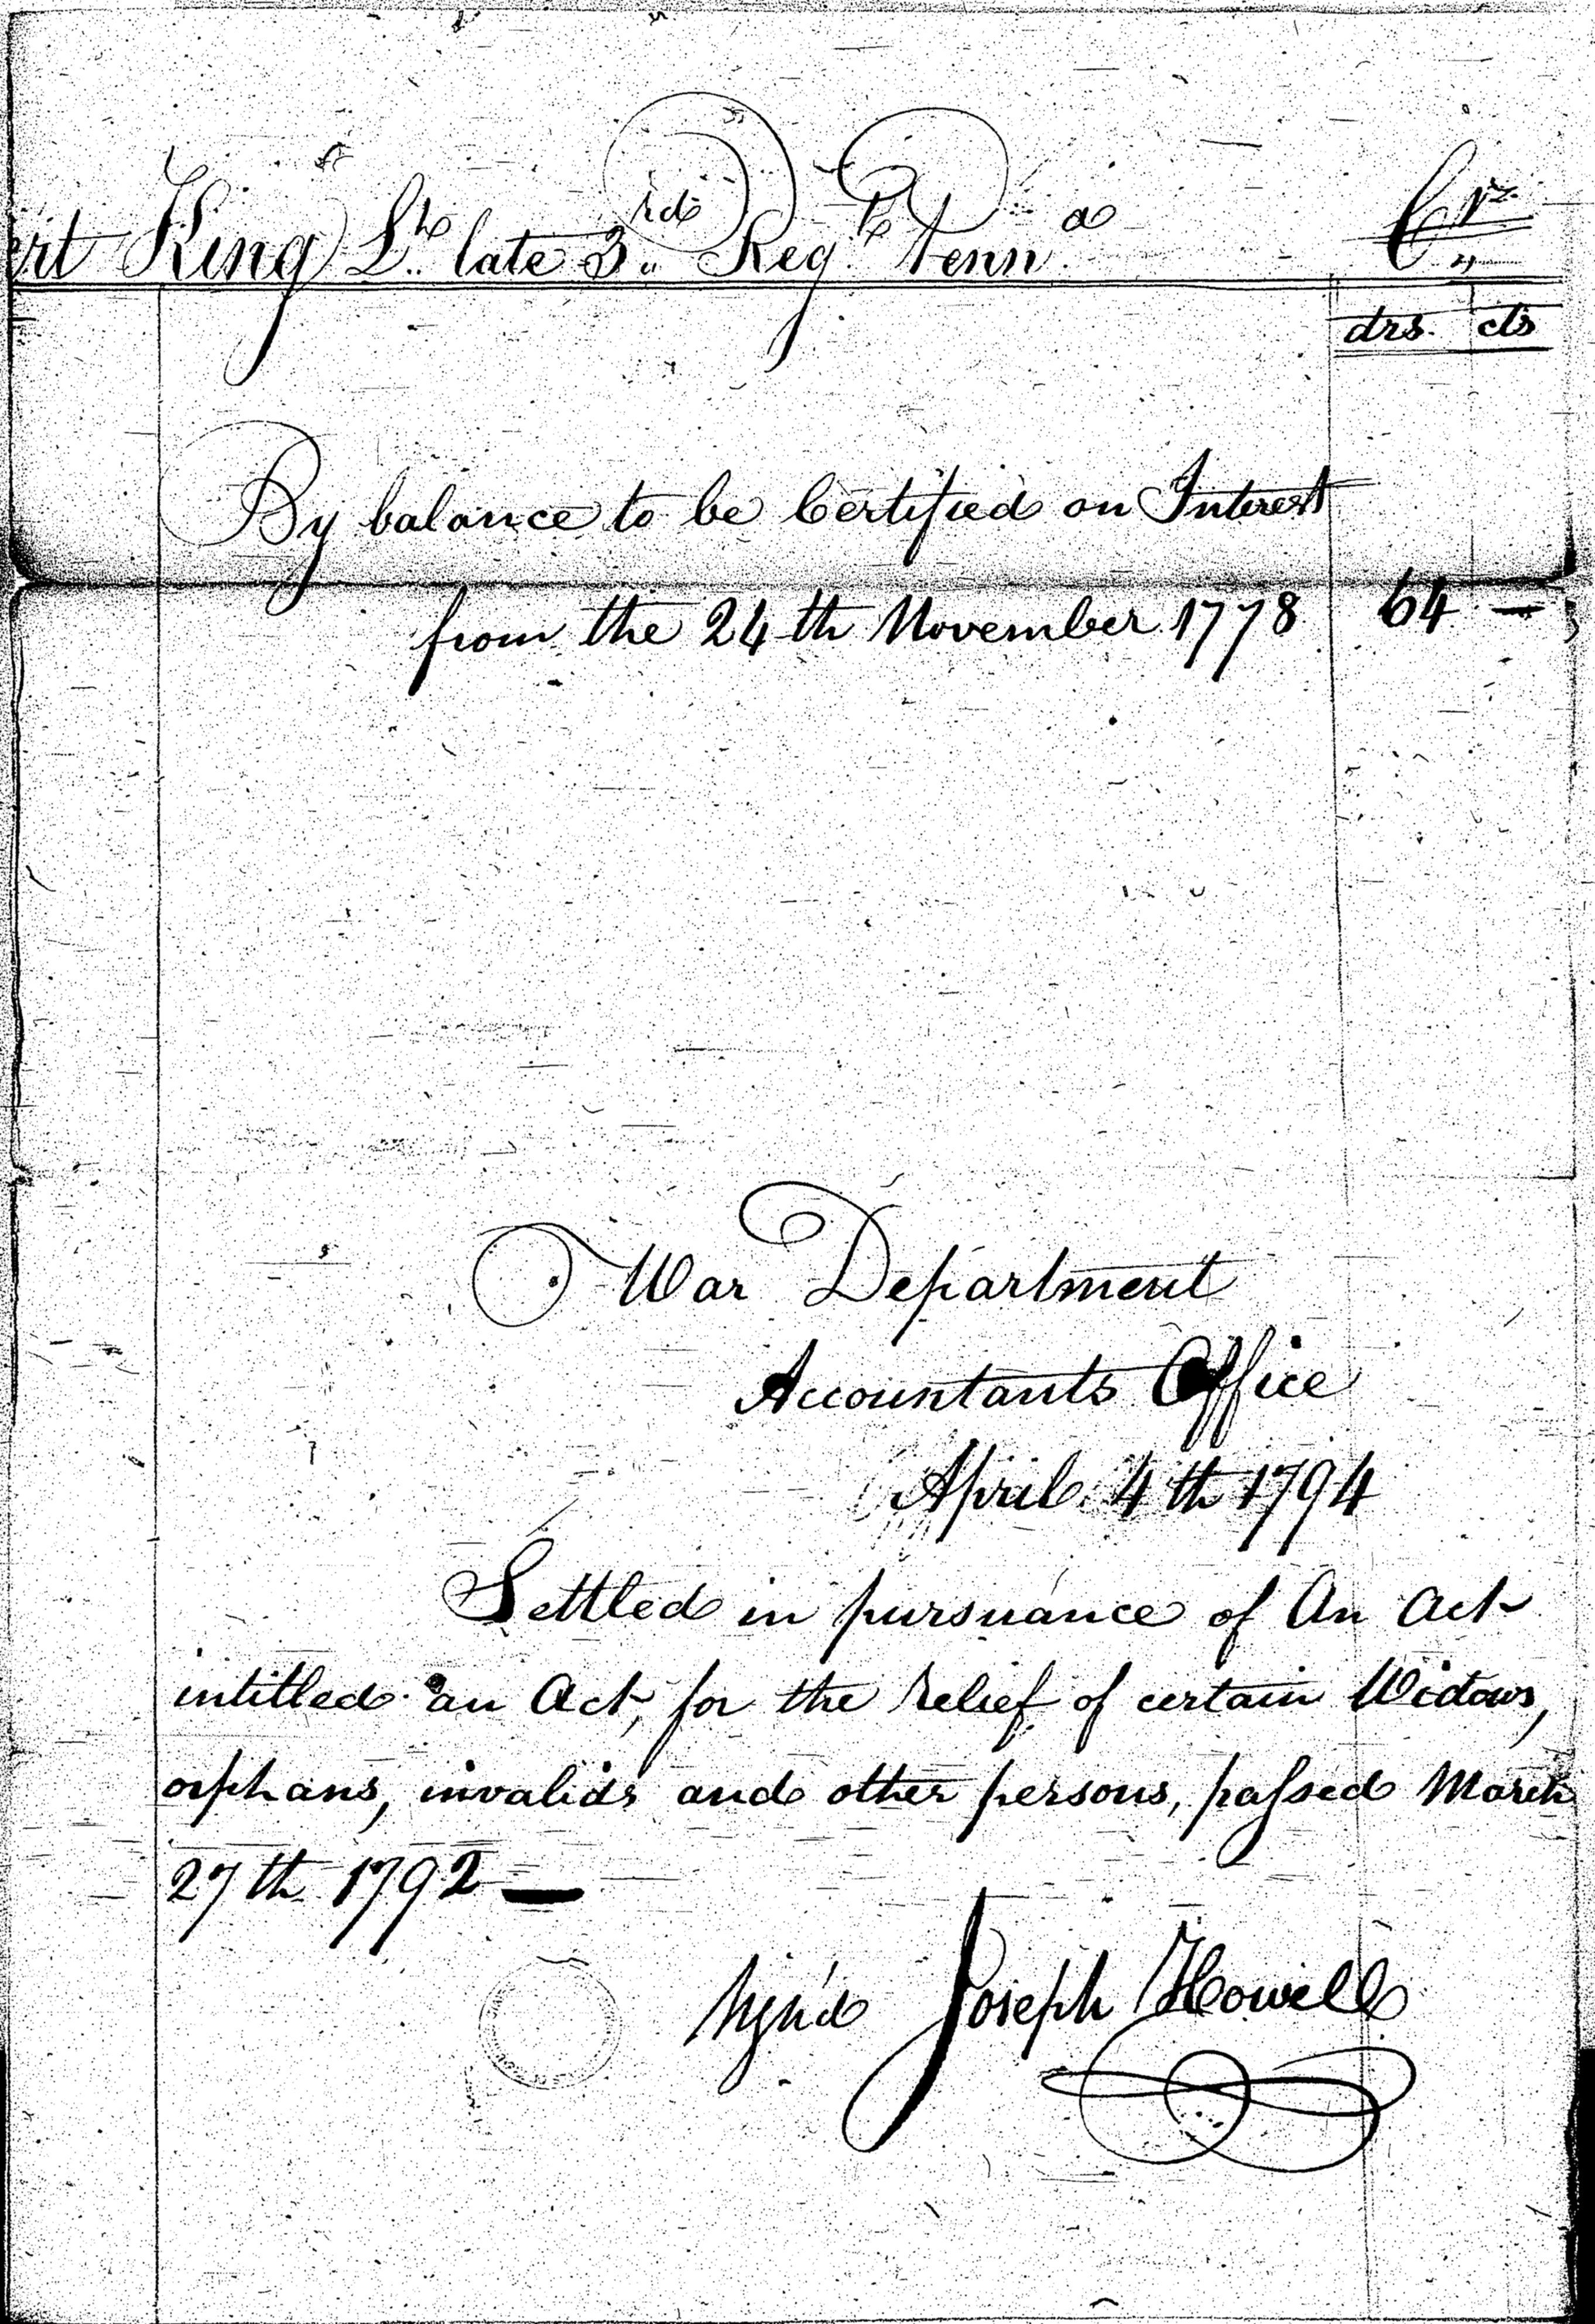 ert King Lt. late 3rd Regt. Penna. Cr.
drs. cts
By balance to be Certified on Interest
from the 24th November 1778 64 —
War Department
Accountants Office
April 4th 1794
Settled in pursuance of An Act
intitled "an Act, for the relief of certain Widows,
orphans, invalids and other persons, passed March
27th 1792 —
Sign'd Joseph Howell